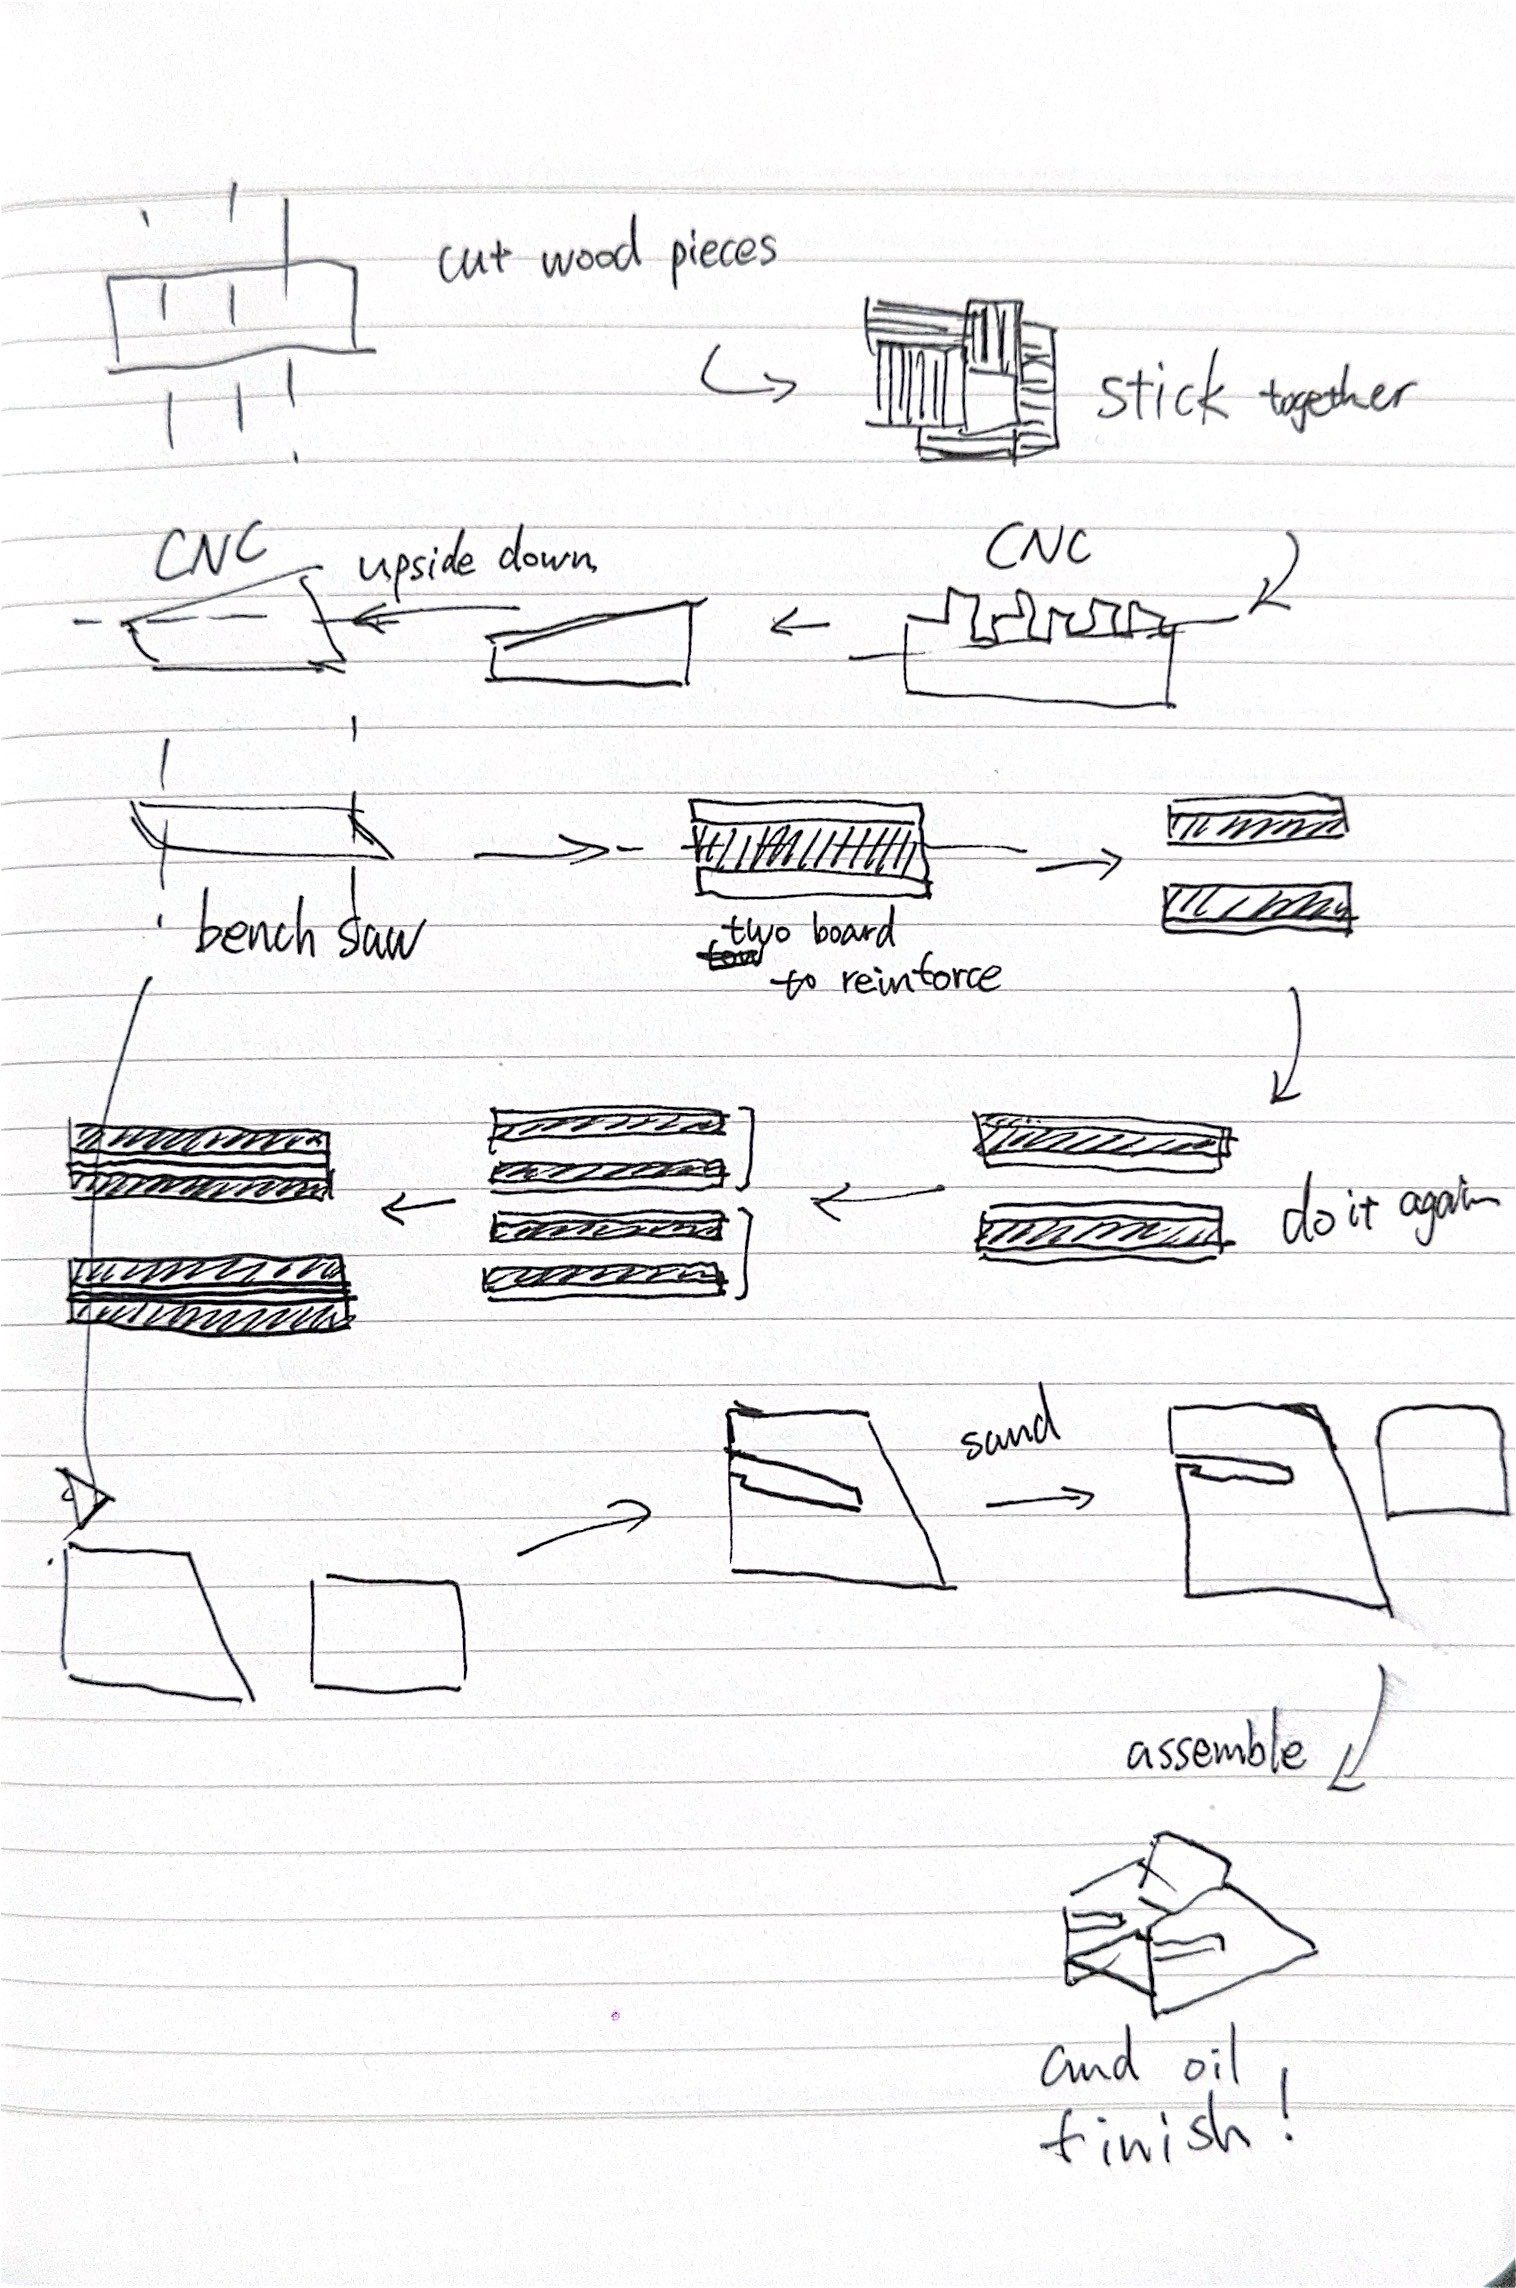 cut wood pieces
stick together
CNC
upside down
CNC
bench saw
two board
to reinforce
do it again
sand
assemble
and oil
finish!